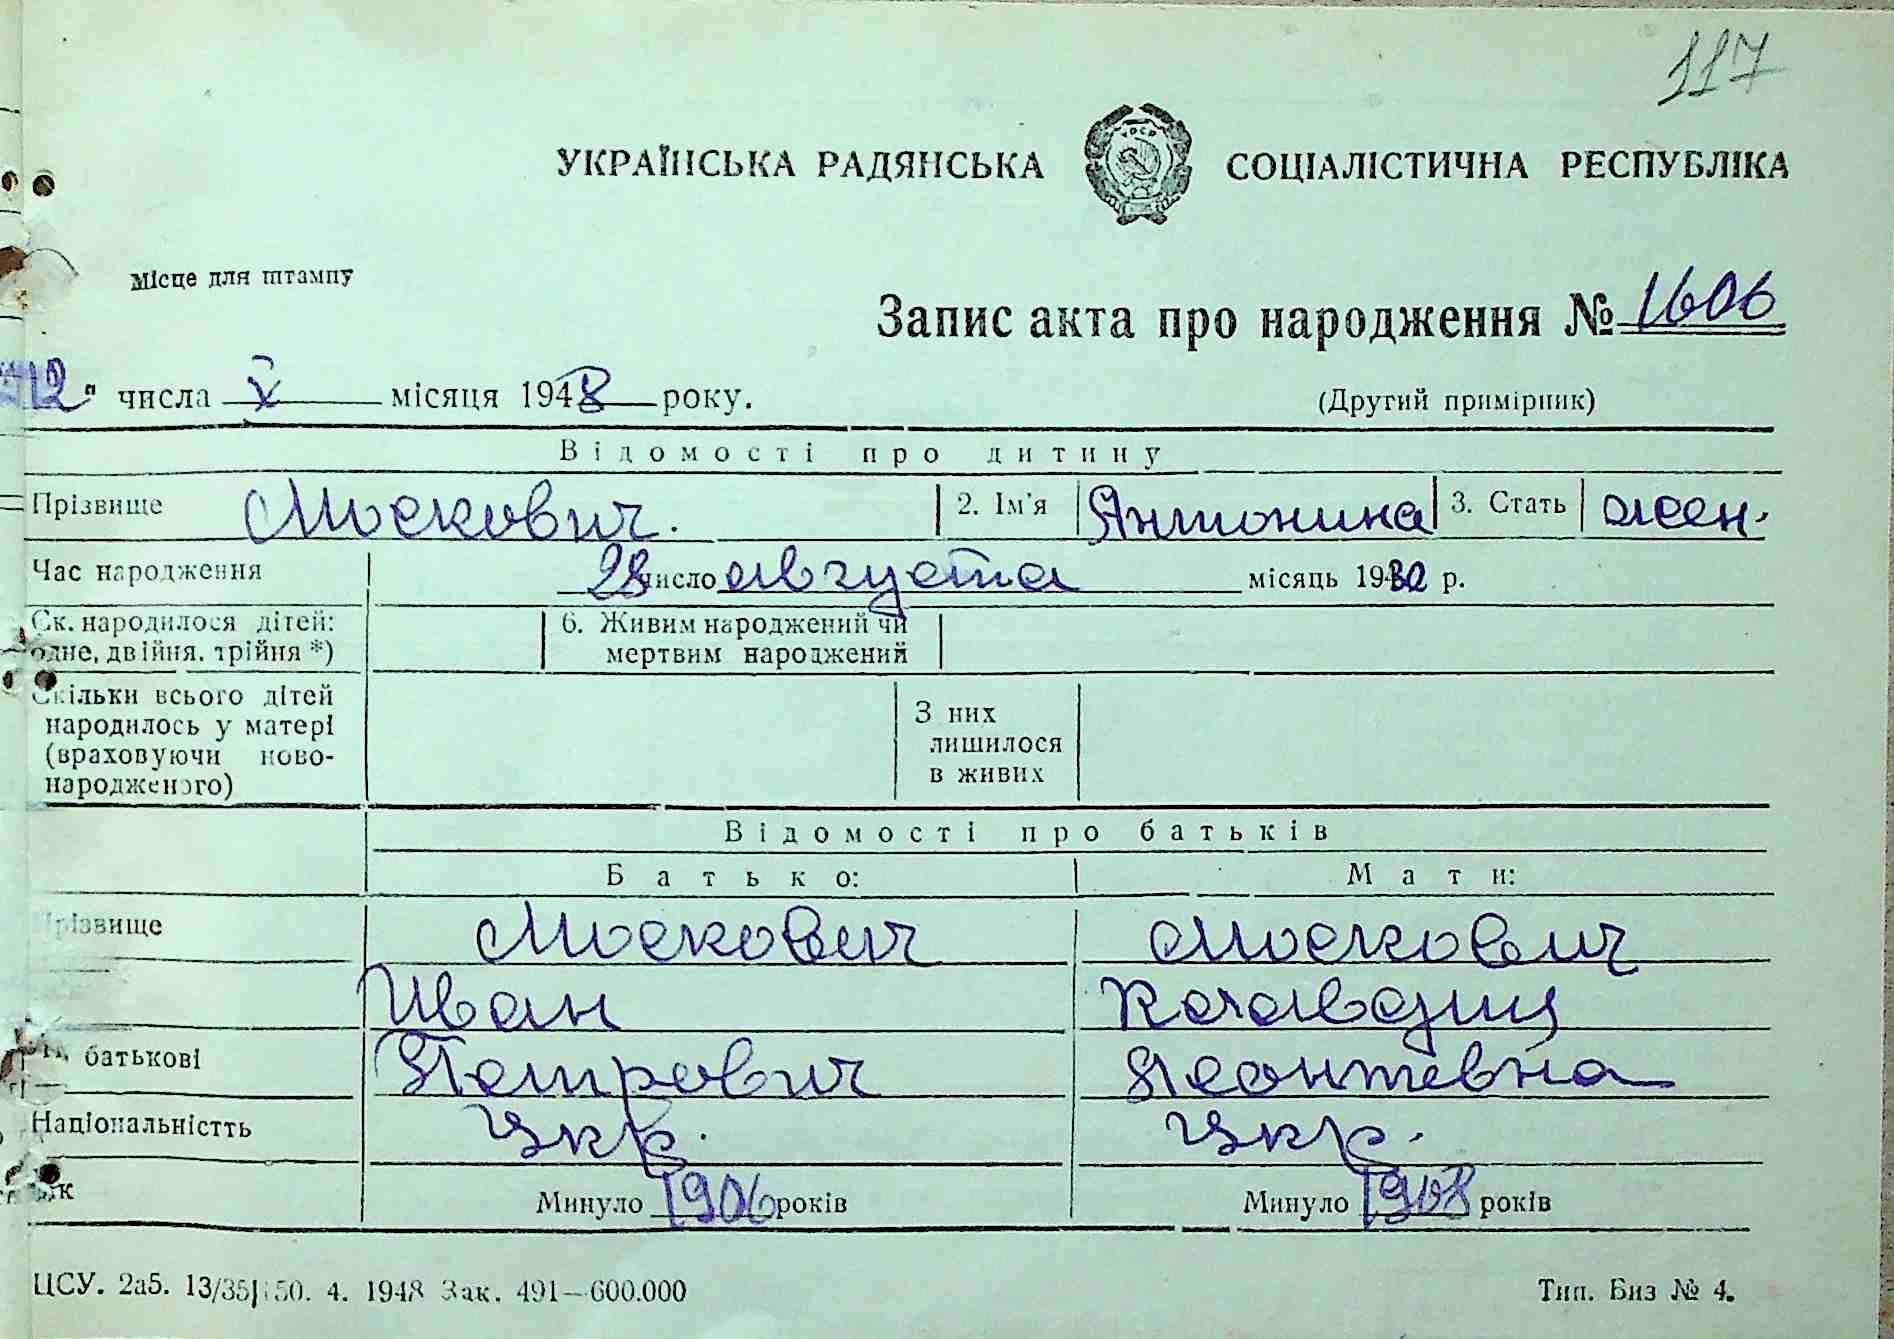 117
УКРАЇНСЬКА РАДЯНСЬКА СОЦІАЛІСТИЧНА РЕСПУБЛІКА
УРСР
Місце для штампу
Запис акта про народження № 1606
12 " числа X місяця 1948 року.
(Другий примірник)
Відомості про дитину
Прізвище Москович. 2. Ім'я Антонина 3. Стать жен.
Час народження 28 число августа місяць 1930 р.
Ск. народилося дітей: 6. Живим народжений чи
одне, двійня, трійня *) мертвим народжений
Скільки всього дітей
народилось у матері
(враховуючи ново-
народженого)
З них
лишилося
в живих
Відомості про батьків
Батько: Мати:
Прізвище Москович Москович
Иван
батькові Петрович Леонтевна
Національністть Укр. Укр.
Минуло 1906 років Минуло 1908 років
ЦСУ. 2а5. 13/35 50. 4. 1948 Зак. 491—600.000
Тип. Биз № 4.